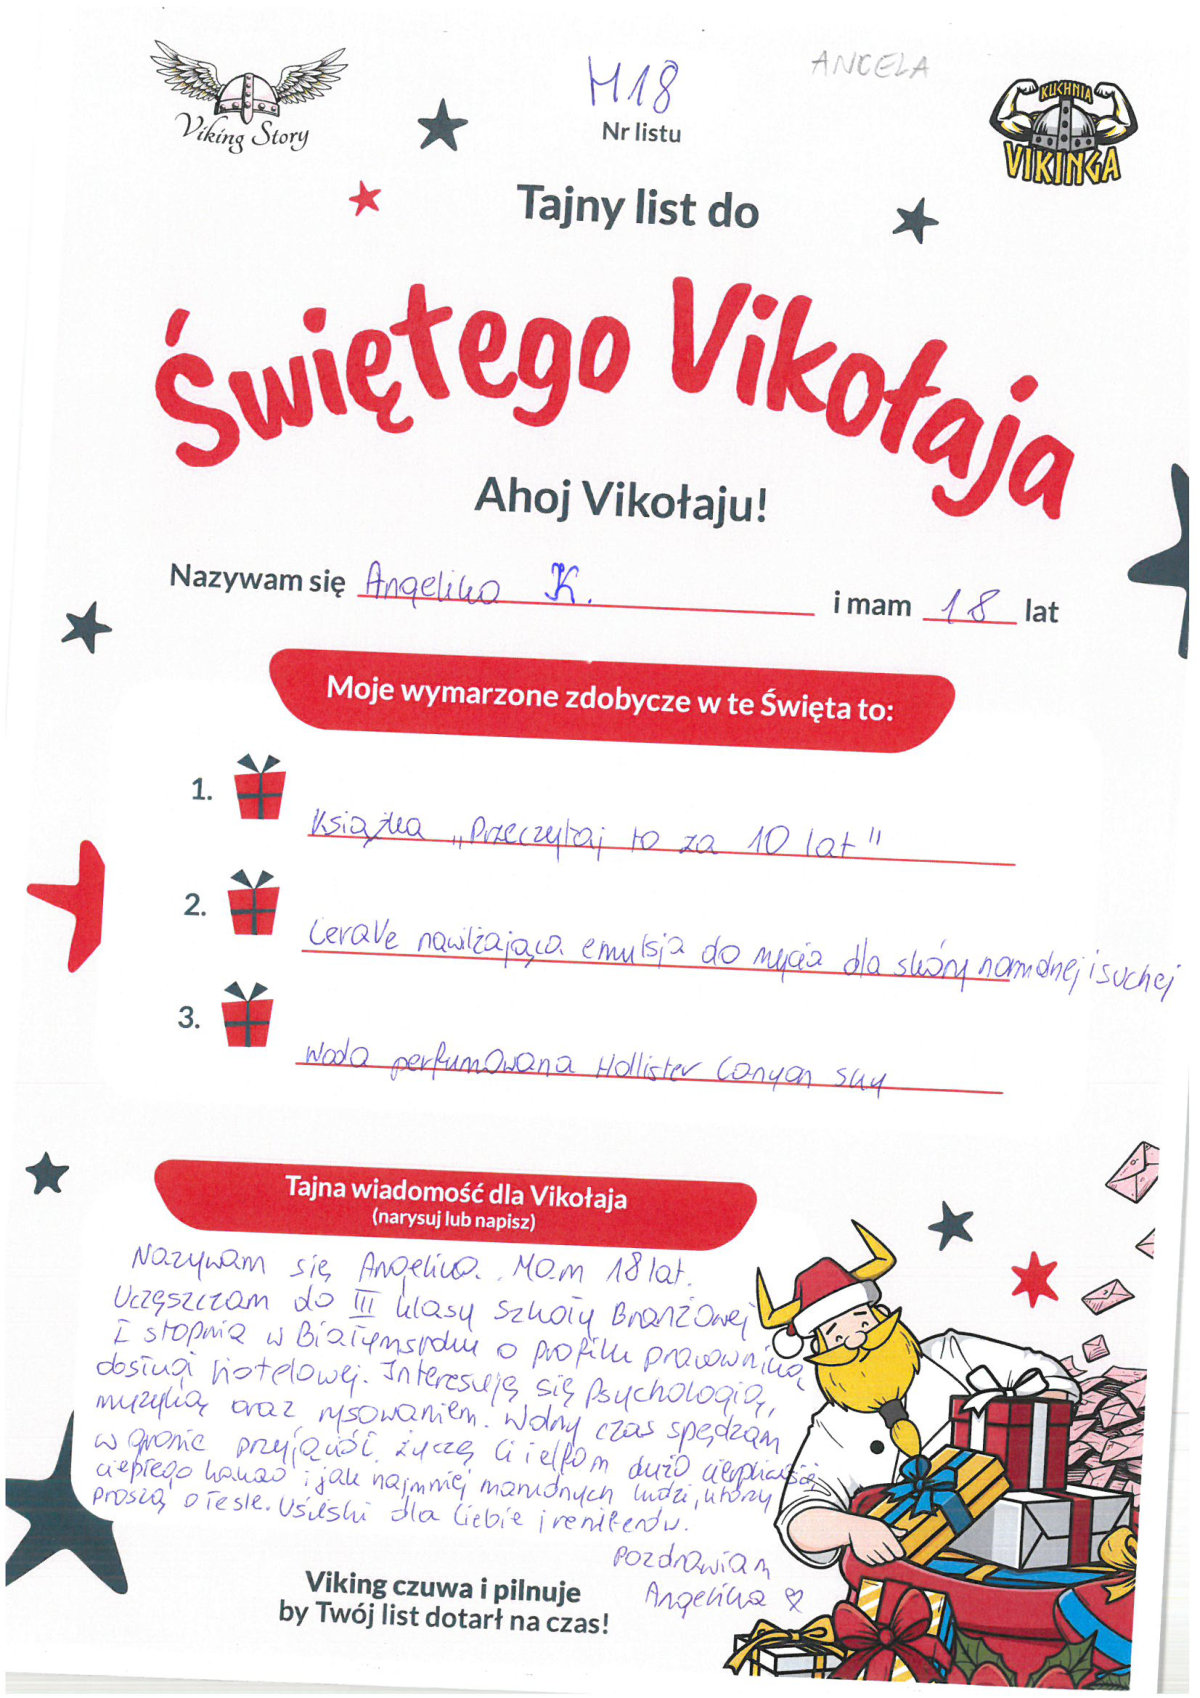 Viking Story
H18
ANGELA
Nr listu
KUCHNIA
VIKINGA
Tajny list do
Świętego Vikołaja
Ahoj Vikołaju!
Nazywam się Angelika K. i mam 18 lat
Moje wymarzone zdobycze w te Święta to:
1. Książka „Przeczytaj to za 10 lat"
2. CeraVe nawilżająca emulsja do mycia dla skóry normalnej i suchej
3. Woda perfumowana Hollister Canyon sky
Tajna wiadomość dla Vikołaja
(narysuj lub napisz)
Nazywam się Angelika. Mam 18 lat.
Uczęszczam do III klasy Szkoły Branżowej
I stopnia w Białymstoku o profilu pracownika
obsługi hotelowej. Interesuję się Psychologią,
muzyką oraz rysowaniem. Wolny czas spędzam
w gronie przyjaciół. życzę Ci i elfom dużo cierpliwości,
ciepłego kakao i jak najmniej marudnych ludzi, którzy
proszą o Tesle. Uściski dla Ciebie i reniferów.
Pozdrawiam
Angelika
Viking czuwa i pilnuje
by Twój list dotarł na czas!